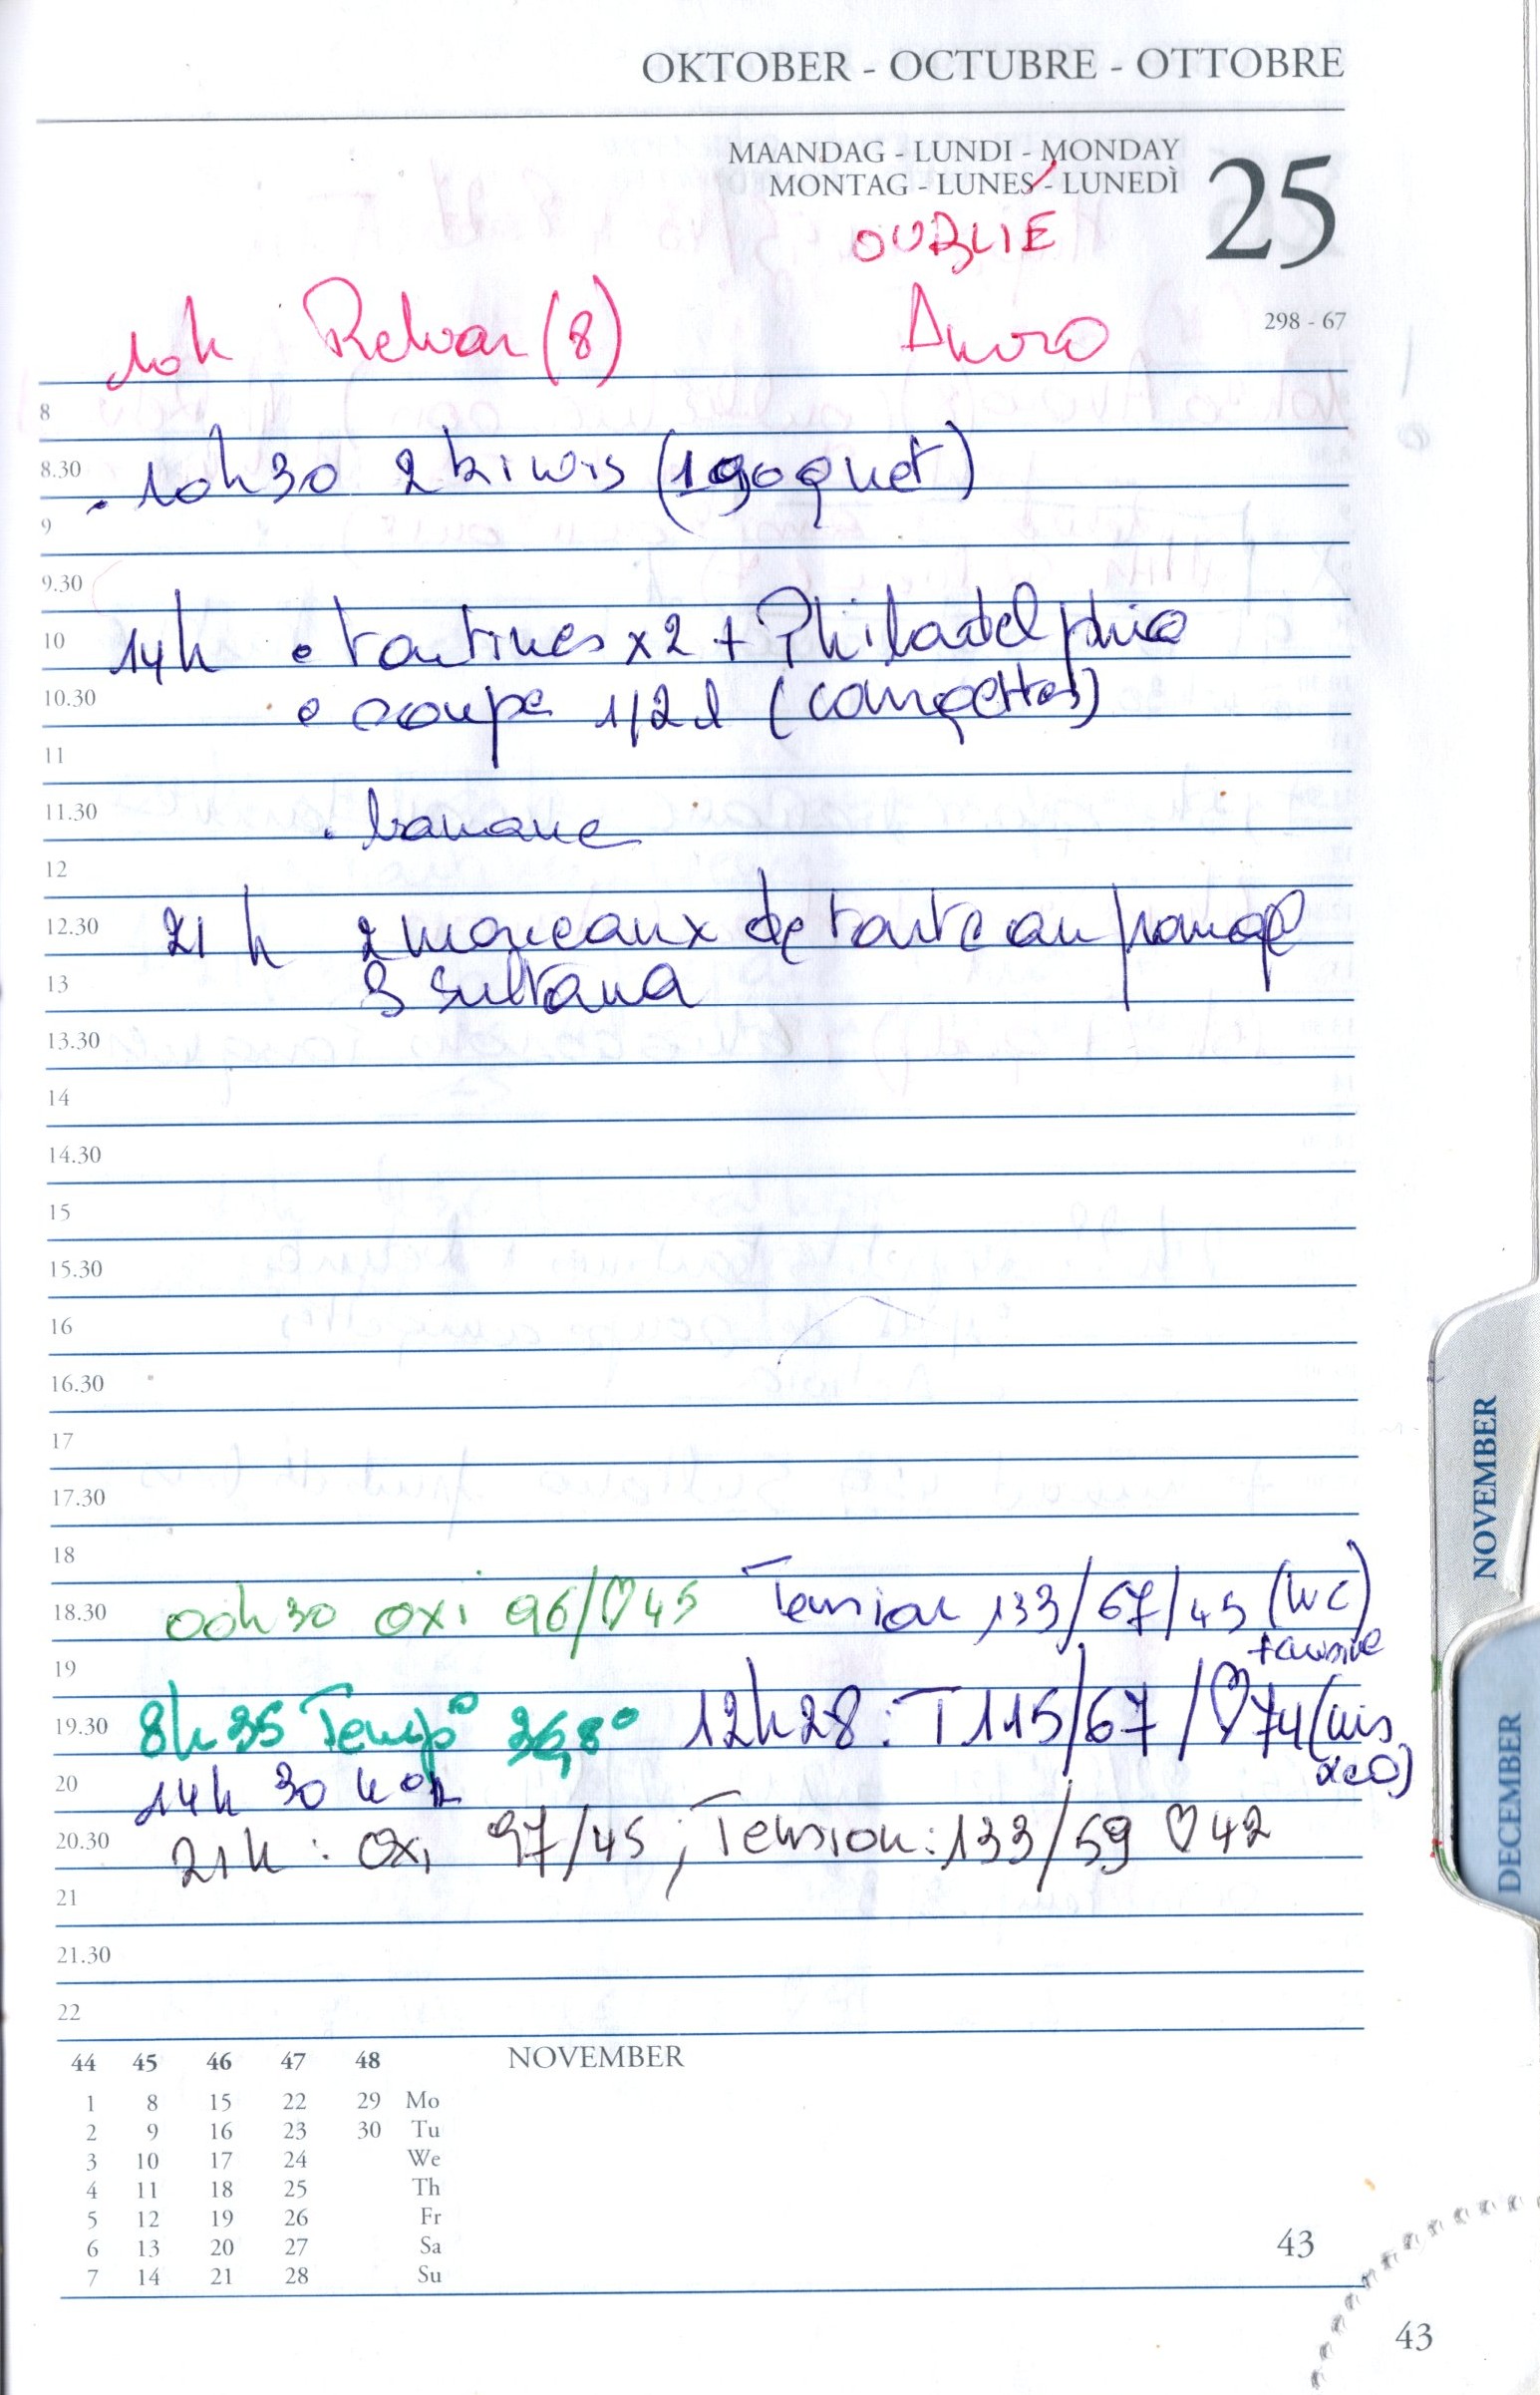 OKTOBER - OCTUBRE - OTTOBRE
MAANDAG - LUNDI - MONDAY
MONTAG - LUNES - LUNEDÌ
25
OUBLIÉ
298 - 67
10h Relvar (8)
8
8.30 . 10h30 2 kiwis (1 hoquet)
9
9.30
10 14h • tartines x2 + Philadelphia
10.30 • soupe 1/2 l (courgettes)
11
11.30 . banane
12
12.30 21h 2 morceaux de tarte au fromage
13 3 sultana
13.30
14
14.30
15
15.30
16
16.30
17
17.30
18
18.30 00h30 oxi 96/♡45 Tension 133/67/45 (WC)
19
19.30 8h35 Temp° 36,8° 12h28 : T 115/67 /♡74
20 14h 30
20.30 21h : Oxi 97/45 ; Tension : 133/59 ♡42
21
21.30
22
44 45 46 47 48 NOVEMBER
1 8 15 22 29 Mo
2 9 16 23 30 Tu
3 10 17 24 We
4 11 18 25 Th
5 12 19 26 Fr
6 13 20 27 Sa
7 14 21 28 Su
43
43
NOVEMBER
DECEMBER